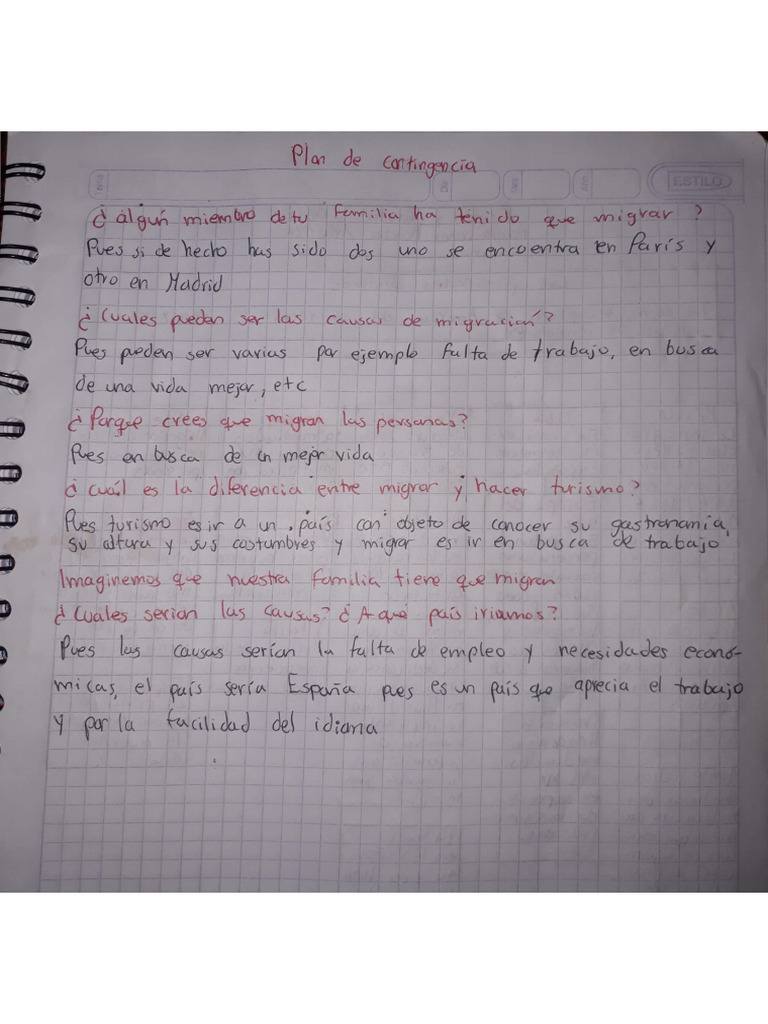 Plan de contingencia
ESTILO
¿ algún miembro de tu Familia ha tenido que migrar ?
Pues si de hecho has sido dos uno se encuentra en París y
otro en Madrid
¿ Cuales pueden ser las causas de migración?
Pues pueden ser varias por ejemplo falta de trabajo, en busca
de una vida mejor, etc
¿ Porque crees que migran las personas?
Pues en busca de un mejor vida
¿ cuál es la diferencia entre migrar y hacer turismo?
Pues turismo es ir a un país con objeto de conocer su gastronomia,
su altura y sus costumbres y migrar es ir en busca de trabajo
Imaginemos que nuestra familia tiene que migran
¿ Cuales serian las causas? ¿ A qué país iriamos?
Pues las causas serían la falta de empleo y necesidades econó-
micas, el país sería España pues es un país que aprecia el trabajo
y por la facilidad del idioma